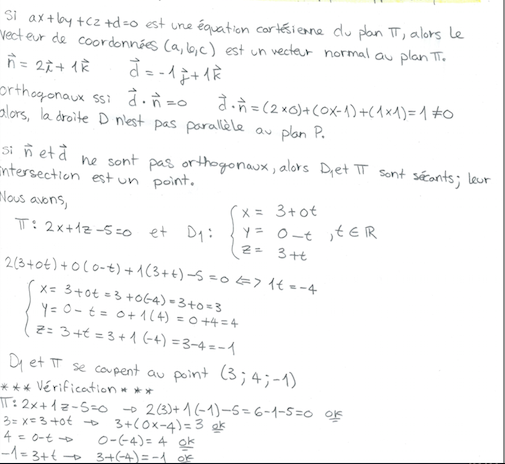 Si ax+by+cz+d=0 est une équation cartésienne du plan π, alors le
vecteur de coordonnées (a,b,c) est un vecteur normal au plan π.
n⃗ = 2i⃗ + 1k⃗ d⃗ = -1j⃗ + 1k⃗
orthogonaux ssi d⃗ · n⃗ = 0 d⃗ · n⃗ = (2×0)+(0×-1)+(1×1)=1≠0
alors, la droite D n'est pas parallèle au plan P.
si n⃗ et d⃗ ne sont pas orthogonaux, alors D₁ et π sont sécants; leur
intersection est un point.
Nous avons,
π: 2x+1z-5=0 et D₁: { x= 3+0t
y= 0-t , t∈ℝ
z= 3+t
2(3+0t)+0(0-t)+1(3+t)-5=0 <=> 1t=-4
{ x= 3+0t = 3+0(-4)=3+0=3
y=0-t = 0+1(4)=0+4=4
z=3+t=3+1(-4)=3-4=-1
D₁ et π se coupent au point (3;4;-1)
*** Vérification ***
π: 2x+1z-5=0 → 2(3)+1(-1)-5=6-1-5=0 ok
3=x=3+0t → 3+(0x-4)=3 ok
4=0-t → 0-(-4)=4 ok
-1=3+t → 3+(-4)=-1 ok